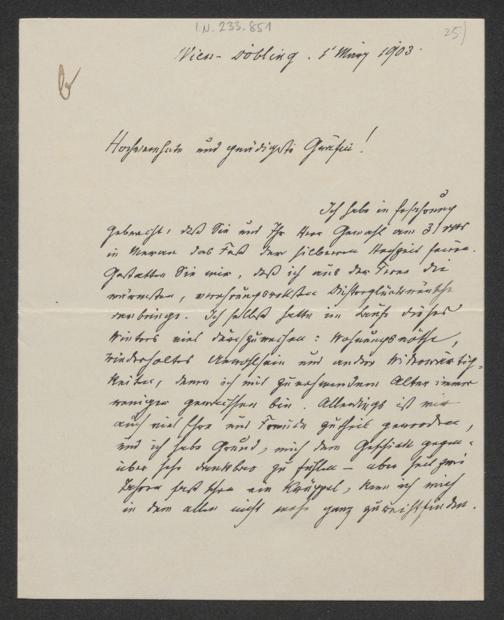 I.N. 233.851
25)
Wien-Döbling. 1t März 1903.
Hochverehrte und gnädigste Gräfin!
Ich habe in Erfahrung
gebracht, daß Sie und Ihr Herr Gemahl am 3/
in Meran das Fest der silbernen Hochzeit feiern.
Gestatten Sie mir, daß ich aus der Ferne die
wärmsten, verehrungsvollsten Dichterglückwünsche
darbringe. Ich selbst hatte im Laufe dieses
Winters viel durchzumachen: Wohnungsnöthe,
wiederholtes Unwohlsein und andere Widerwärtig-
keiten, denen ich mit zunehmendem Alter immer
weniger gewachsen bin. Allerdings ist mir
auch viel Ehre und Freude zutheil geworden,
und ich habe Grund, mich dem Geschick gegen-
über sehr dankbar zu fühlen – aber seit zwei
Jahren fast schon ein Krüppel, kann ich mich
in dem allen nicht mehr ganz zurechtfinden.